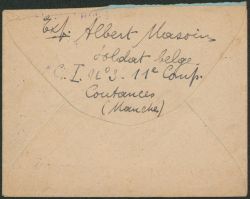 Exp. Albert Masoin
soldat belge
C. I. N° 2. 11e Comp.
Coutances
(Manche)